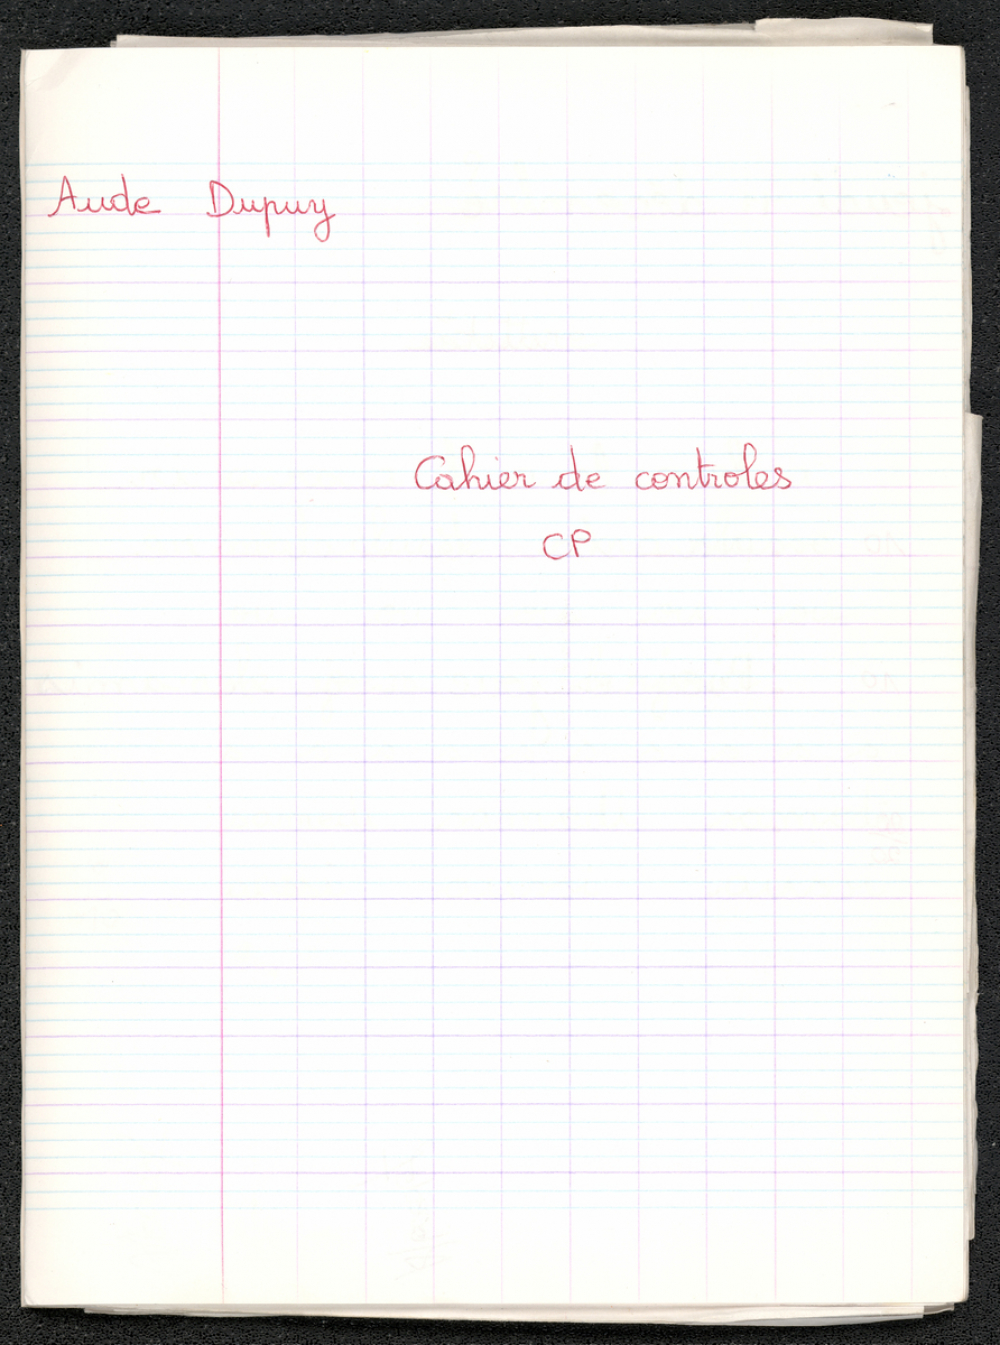 Aude Dupuy
Cahier de controles
CP